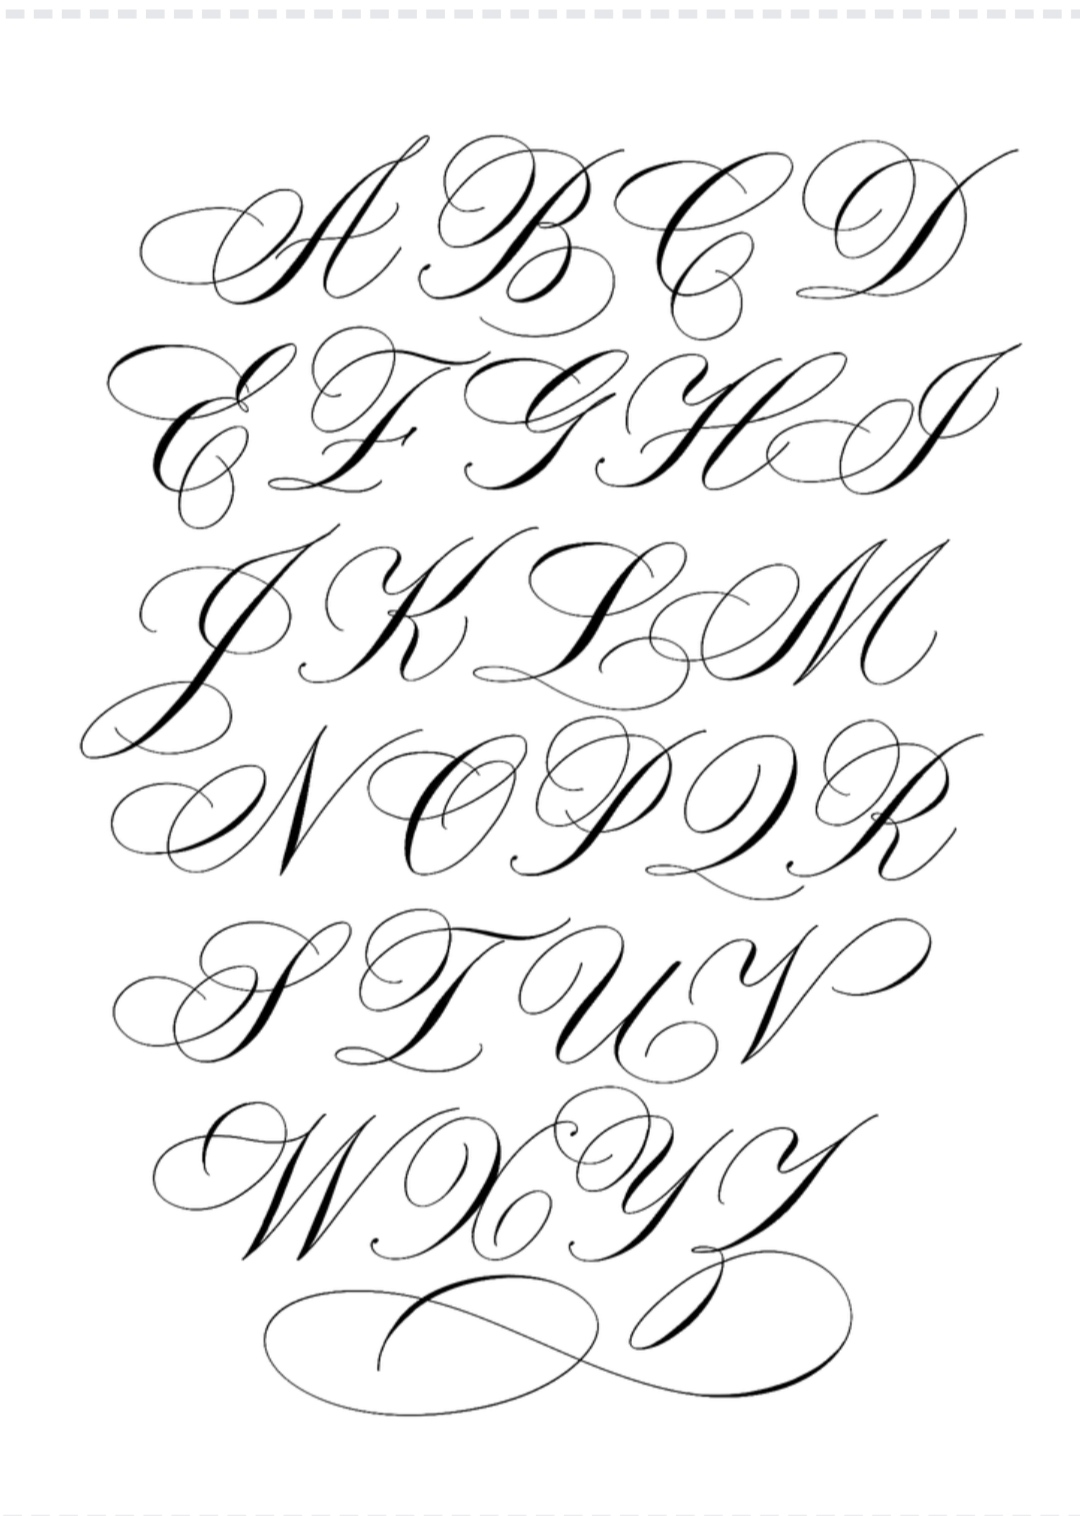 A B C D
E F G H I
J K L M
N O P Q R
S T U V
W X Y Z